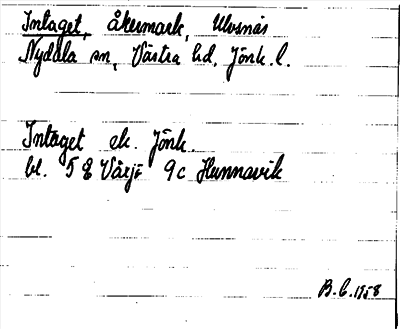 Intaget, åkermark, Ulvsnäs
Nydala sn, Västra hd, Jönk. l.
Intaget ek. Jönk.
bl. 5 8 Värjö 9c Hunnavik
B. C. 1958